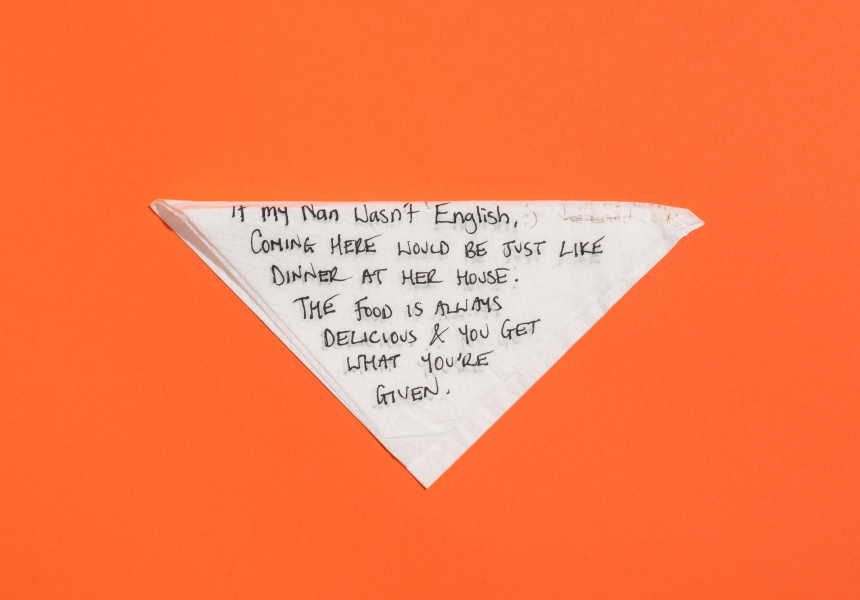 If my Nan Wasn't English, :)
COMING HERE WOULD BE JUST LIKE
DINNER AT HER HOUSE.
THE FOOD IS ALWAYS
DELICIOUS & YOU GET
WHAT YOU'RE
GIVEN.